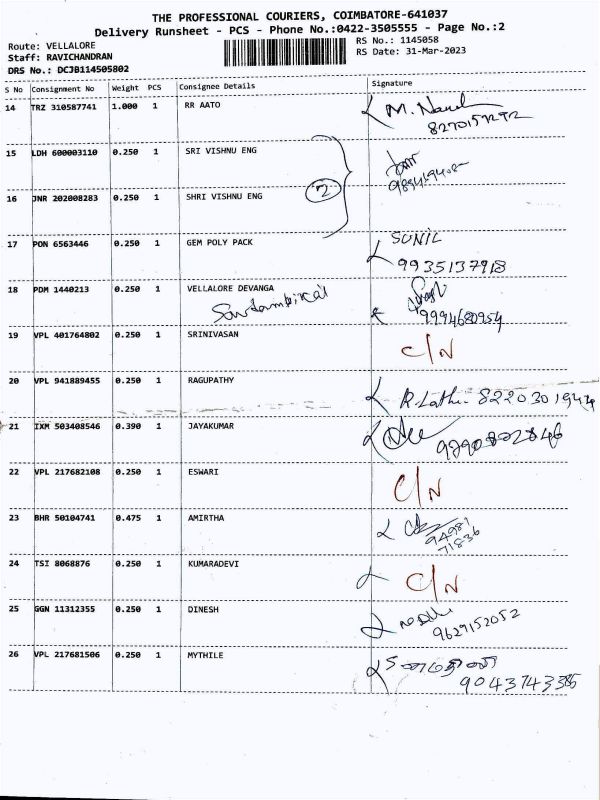 THE PROFESSIONAL COURIERS, COIMBATORE-641037
Delivery Runsheet - PCS - Phone No.:0422-3505555 - Page No.:2
Route: VELLALORE
Staff: RAVICHANDRAN
DRS No.: DCJB114505802
RS No.: 1145058
RS Date: 31-Mar-2023
S No Consignment No Weight PCS Consignee Details Signature
14 TRZ 310587741 1.000 1 RR AATO
15 LDH 600003110 0.250 1 SRI VISHNU ENG
2
16 JNR 202008283 0.250 1 SHRI VISHNU ENG
17 PON 6563446 0.250 1 GEM POLY PACK SUNIL
9935137918
18 PDM 1440213 0.250 1 VELLALORE DEVANGA
9994680954
19 VPL 401764802 0.250 1 SRINIVASAN C/N
20 VPL 941889455 0.250 1 RAGUPATHY
21 IXM 503408546 0.390 1 JAYAKUMAR
22 VPL 217682108 0.250 1 ESWARI C/N
23 BHR 50104741 0.475 1 AMIRTHA
94981
71836
24 TSI 8068876 0.250 1 KUMARADEVI C/N
25 GGN 11312355 0.250 1 DINESH
9629152052
26 VPL 217681506 0.250 1 MYTHILE